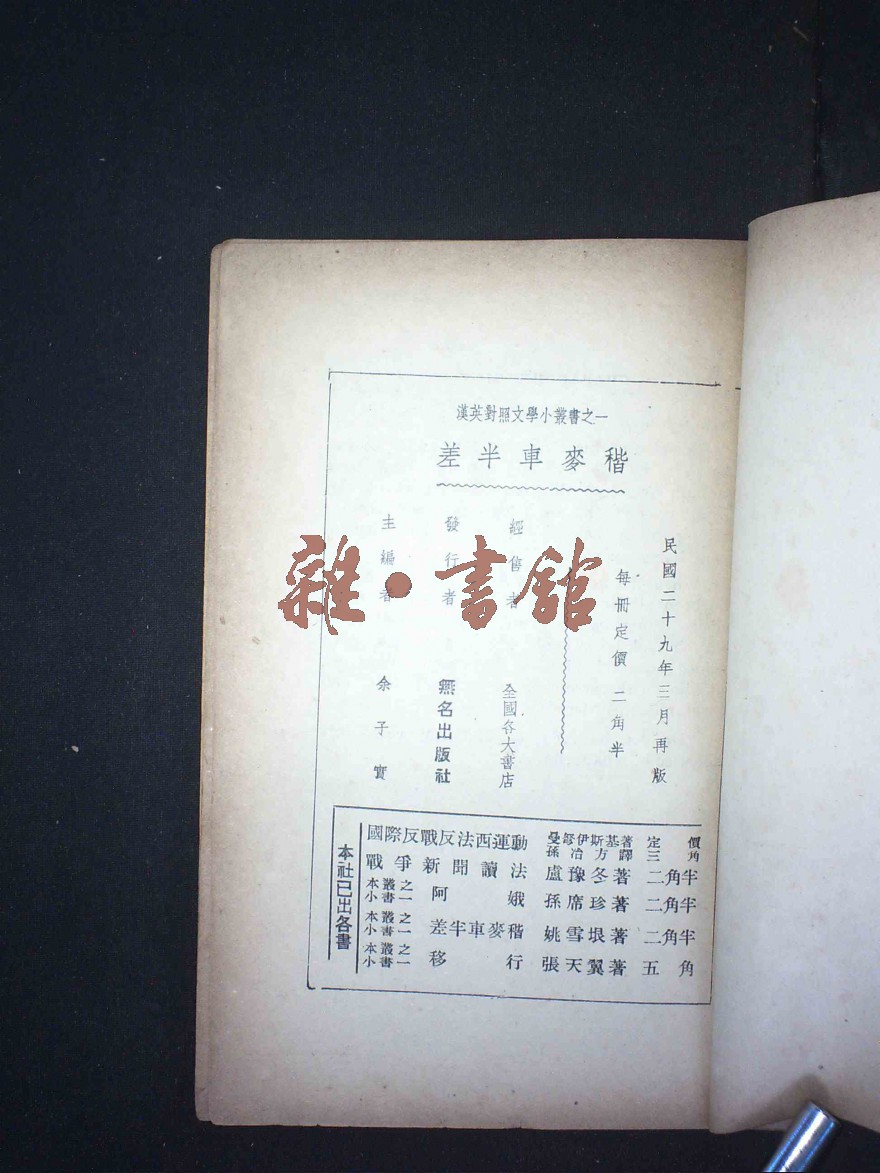 漢英對照文學小叢書之一
差半車麥稭
民國二十九年三月再版
每冊定價 二角半
經售者 全國各大書店
發行者 無名出版社
主編者 余子實
雜·書館
本社已出各書
國際反戰反法西運動 曼努伊斯基著 孫冶方譯 定價三角
戰爭新聞讀法 盧豫冬著 二角半
本叢小書之一 阿娥 孫席珍著 二角半
本叢小書之一 差半車麥稭 姚雪垠著 二角半
本叢小書之一 移行 張天翼著 五角